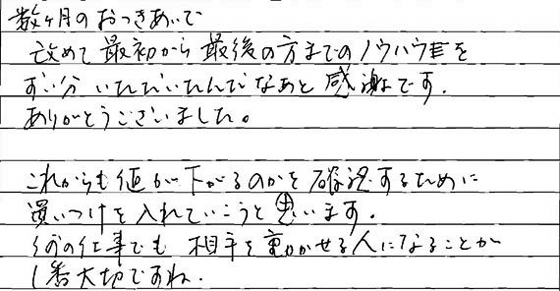 数ヶ月のおつきあいで
改めて最初から最後の方までのノウハウを
ずい分いただいたんだなあと感謝です.
ありがとうございました。
これからも値が下がるのかを確認するために
買いつけを入れていこうと思います.
仕事でも相手を動かせる人になることが
1番大切ですね.